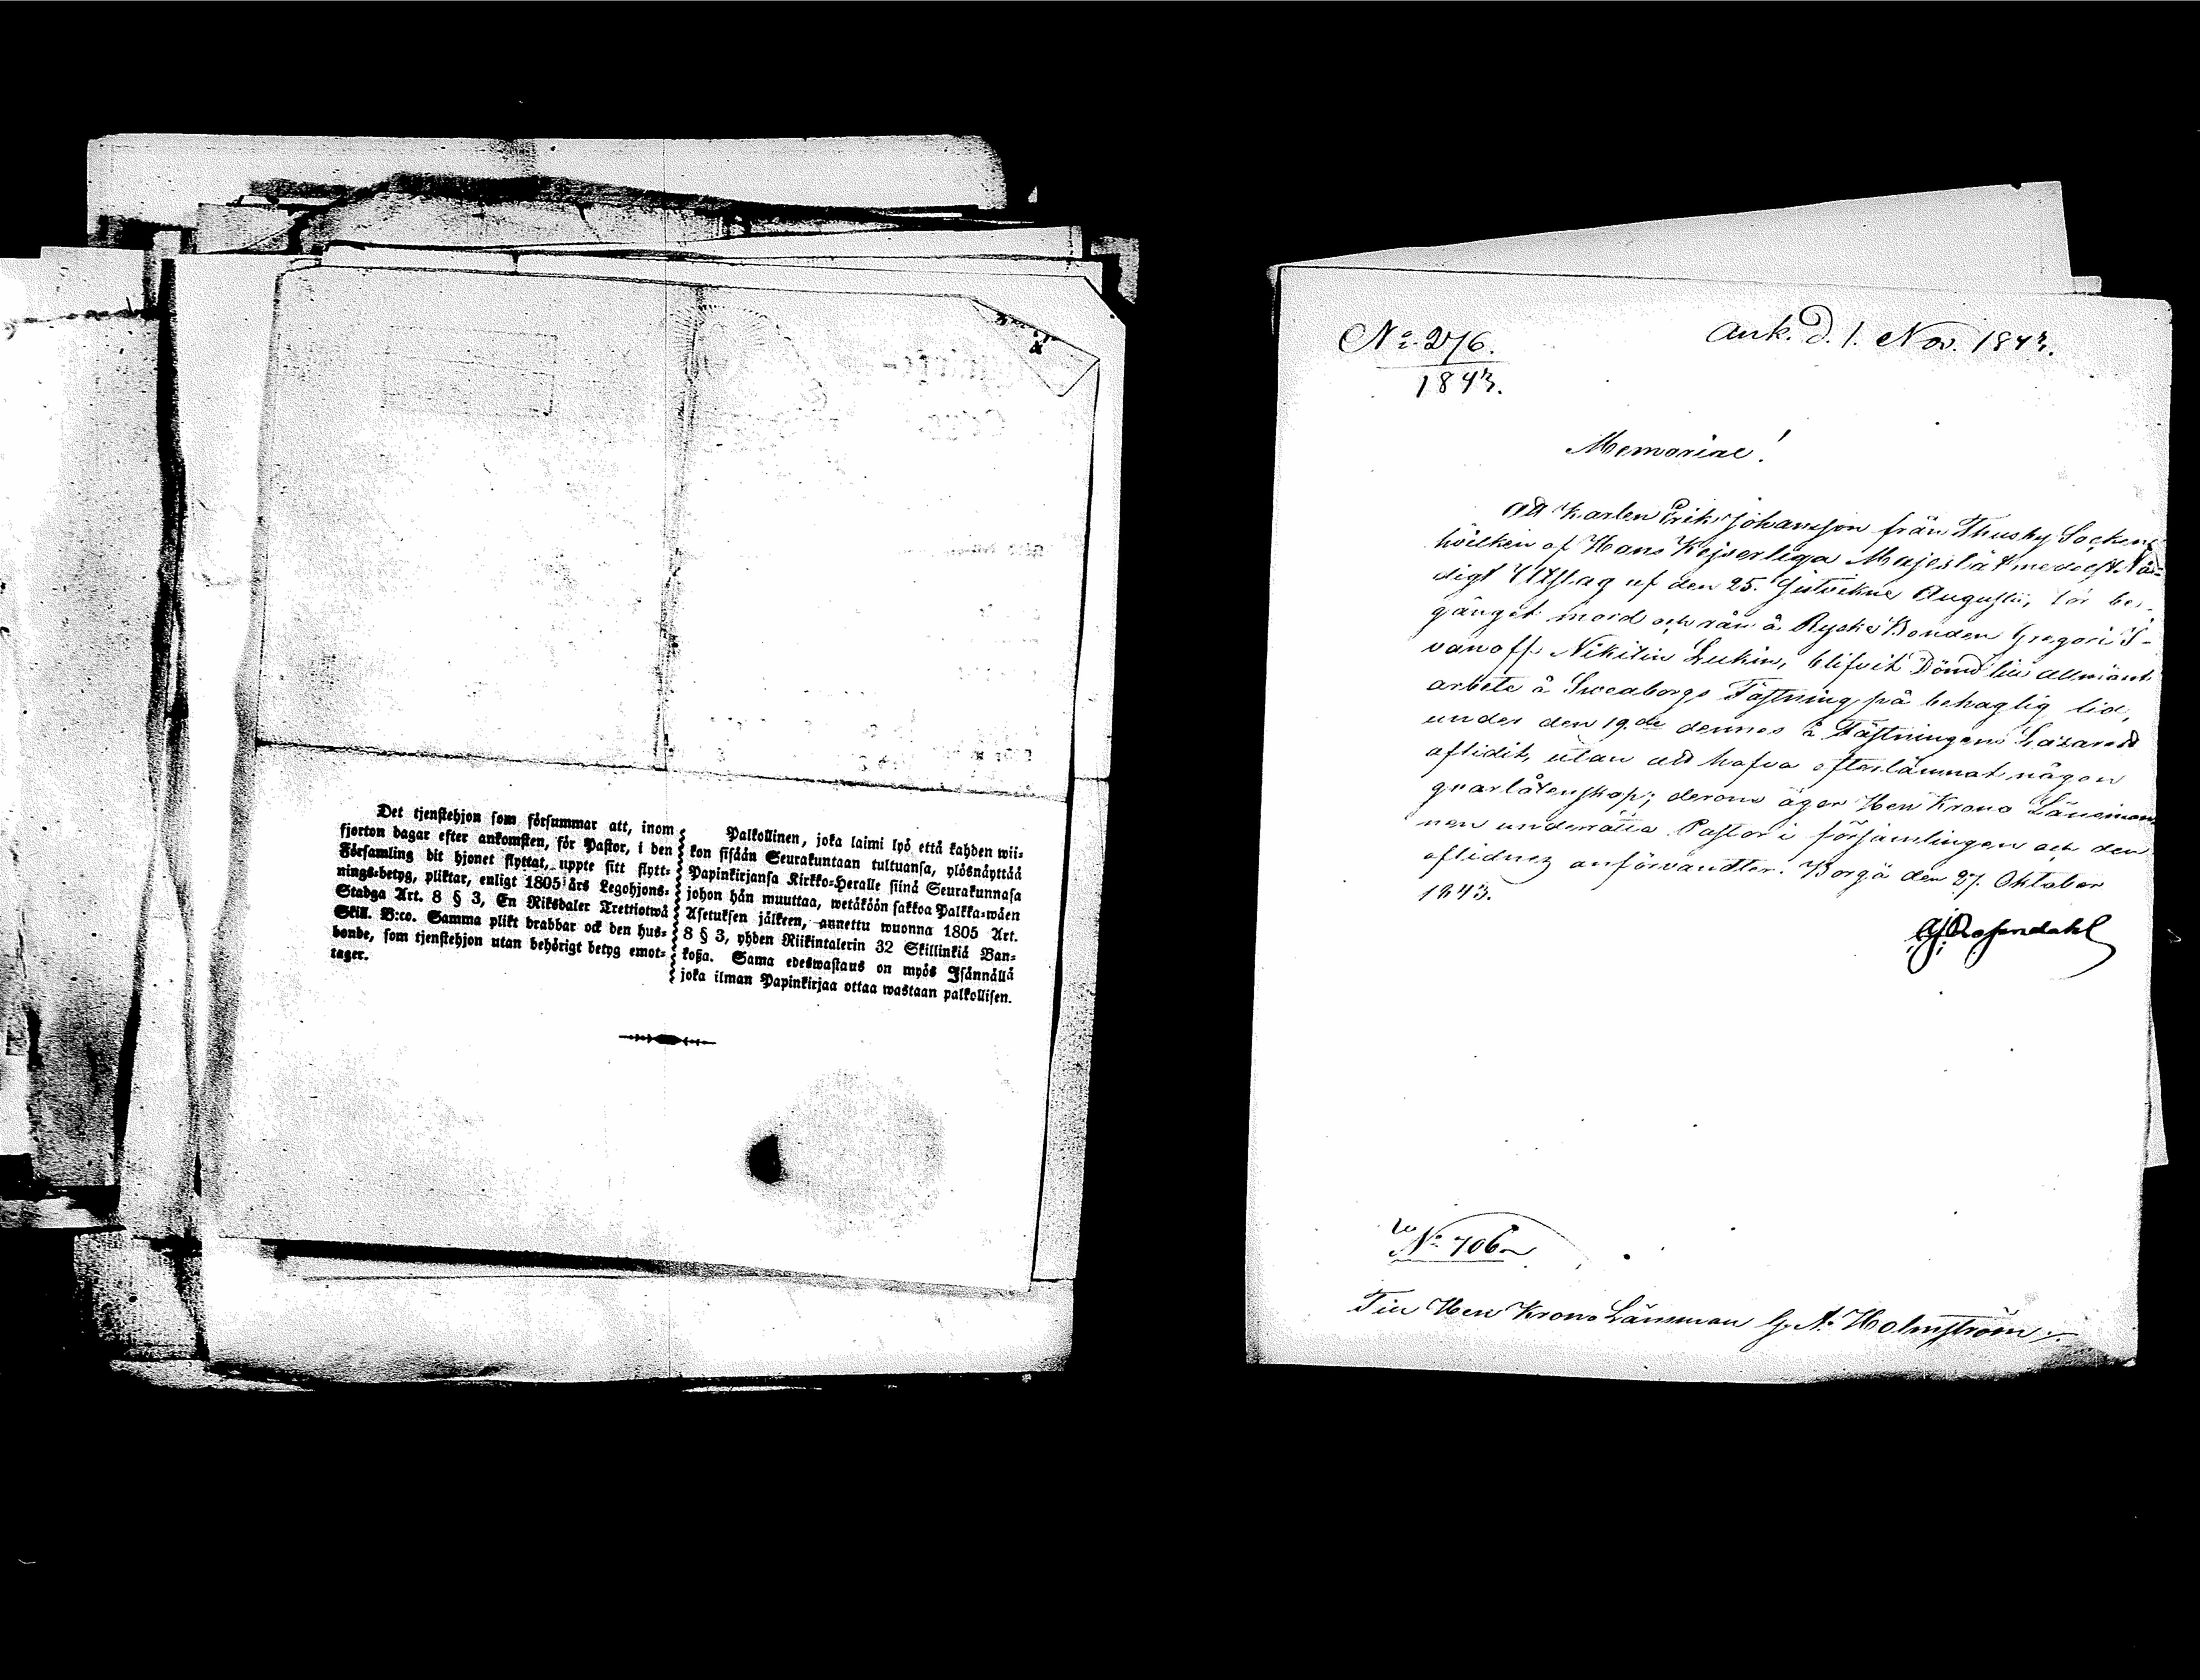 Det tjenstehjon som försummar att, inom
fjorton dagar efter ankomsten, för Pastor, i den
Församling dit hjonet flyttat, uppte sitt flytt-
nings-betyg, pliktar, enligt 1805 års Legohjons-
Stadga Art. 8 § 3, En Riksdaler Trettiotwå
Skill. B:co. Samma plikt drabbar ock den hus-
bonde, som tjenstehjon utan behörigt betyg emot-
tager.
Palkollinen, joka laimi lyö että kahden wii-
kon sisään Seurakuntaan tultuansa, ylösnäyttää
Papinkirjansa Kirkko-Heralle siinä Seurakunnasa
johon hän muuttaa, wetäköön sakkoa Palkka-wäen
Asetuksen jälkeen, annettu wuonna 1805 Art.
8 § 3, yhden Riikintalerin 32 Skillinkiä Ban-
koßa. Sama edeswastaus on myös Isännällä
joka ilman Papinkirjaa ottaa wastaan palkollisen.
No 276.
1843.
Ank. d. 1. Nov. 1843.
Memorial!
Att Karlen Erik Johansson från Thusby Socken
hvilken af Hans Kejserliga Majestät medelst Nå-
digt Utslag af den 25. sistvikne Augusti, för be-
gånget mord och rån å Ryske Bonden Gregori I-
vanoff Nikitin Lukin, blifvit Dömd till allmänt
arbete å Sveaborgs Fästning på behaglig tid,
under den 19.de dennes å Fästningens Lazarett
aflidit, utan att hafva efterlämnat någon
qvarlåtenskap; derom äger Herr Krono Länsman
nen underrätta Pastor i församlingen och den
aflidnes anförvandter. Borgå den 27. Oktober
1843.
Rosendahl
No 706
Till Herr Krono Länsman G. A. Holmström